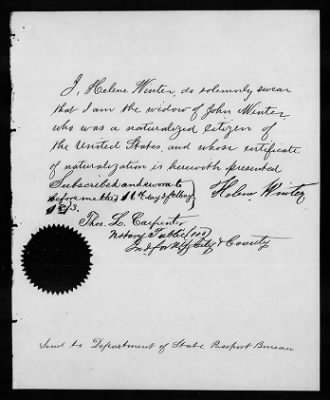 I, Helene Winter, do solemnly swear
that I am the widow of John Winter,
who was a naturalized citizen of
the United States, and whose certificate
of naturalization is herewith presented
Subscribed and sworn to
before me this 16th day of May
1873.
Helene Winter
Thos. L. Carpenter
Notary Public (100)
In & for City & County
Send to Department of State Passport Bureau